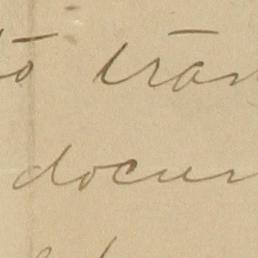 to tran
docum